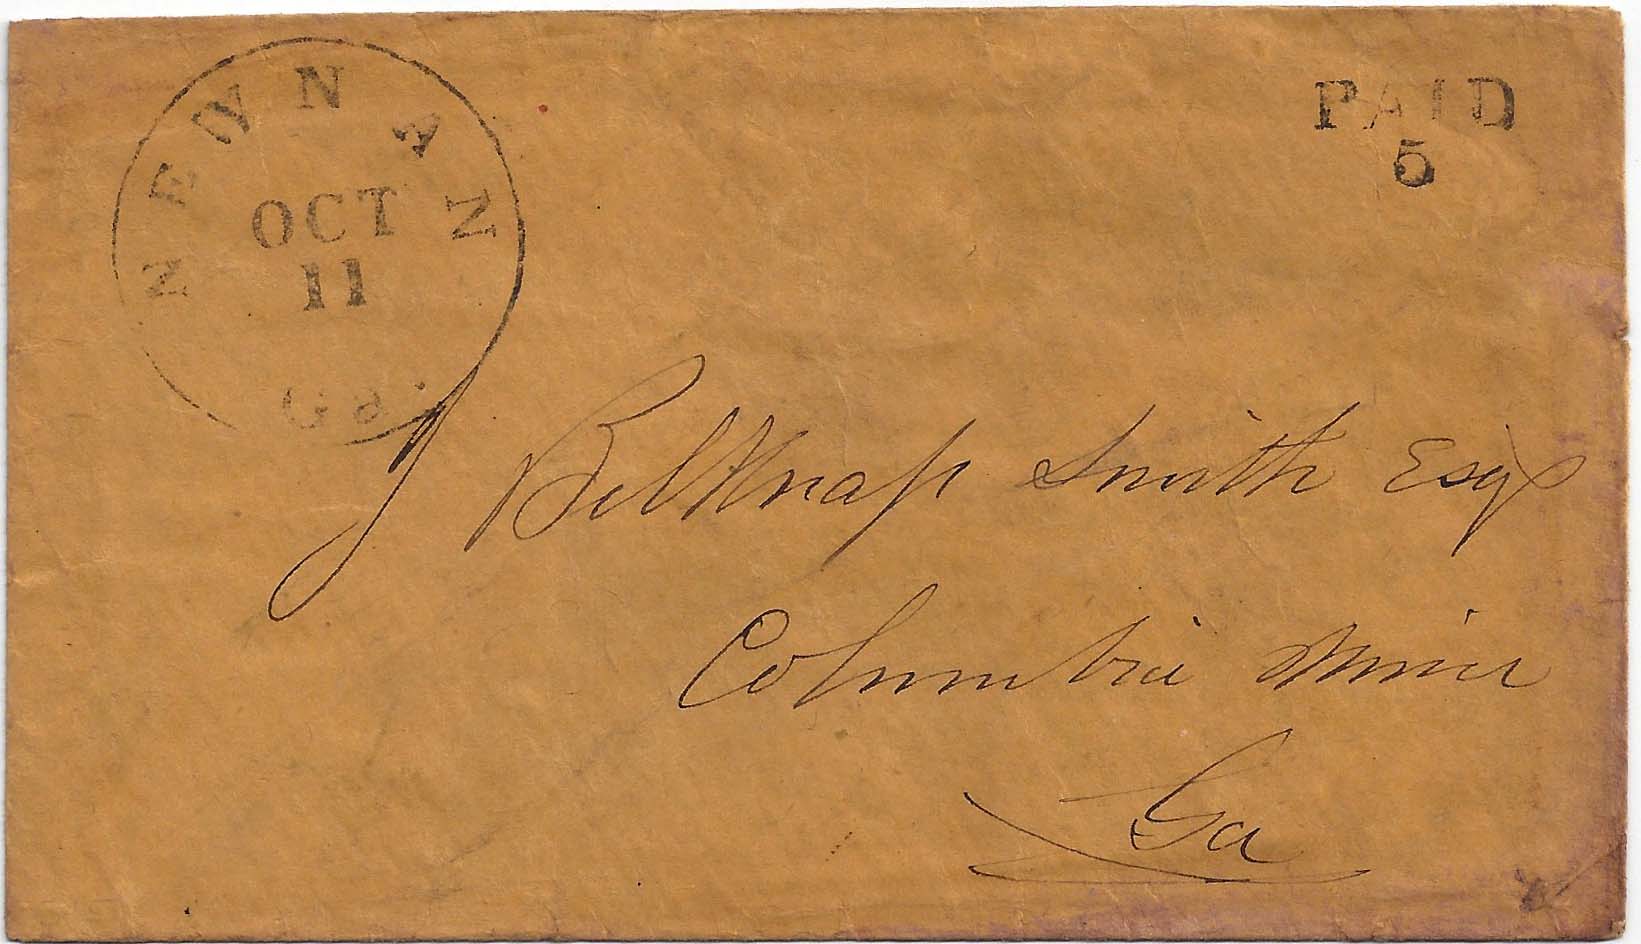 NEWNAN
OCT
11
Ga.
PAID
5
J Belknap Smith Esq
Columbia Mines
Ga